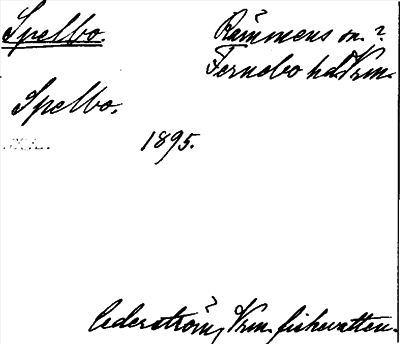 Spelbo. Rämmens sn. ?
Fernebo hd Vrm.
Spelbo.
1895.
Cederström, Vrm. fiskevatten.